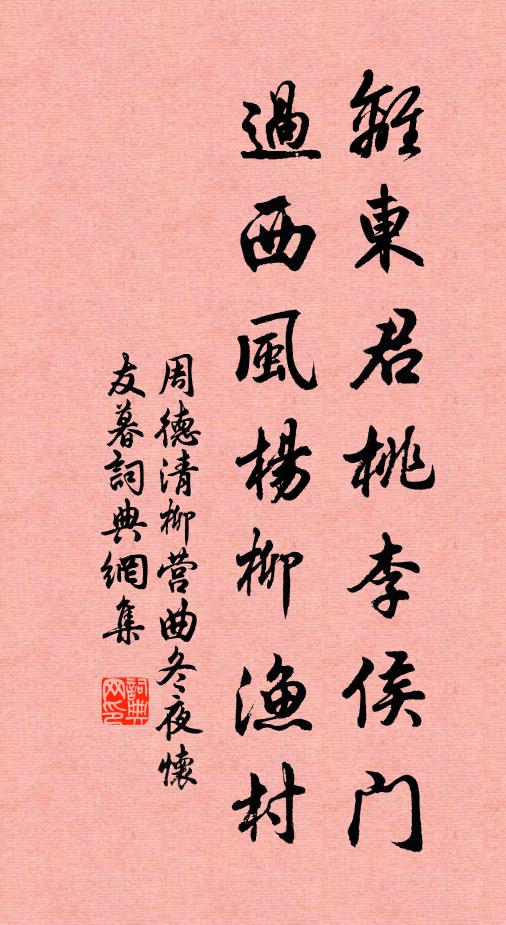 離東君桃李侯門
過西風楊柳漁村
周德清柳营曲冬夜懷
友暮詞典網集
詞典网印